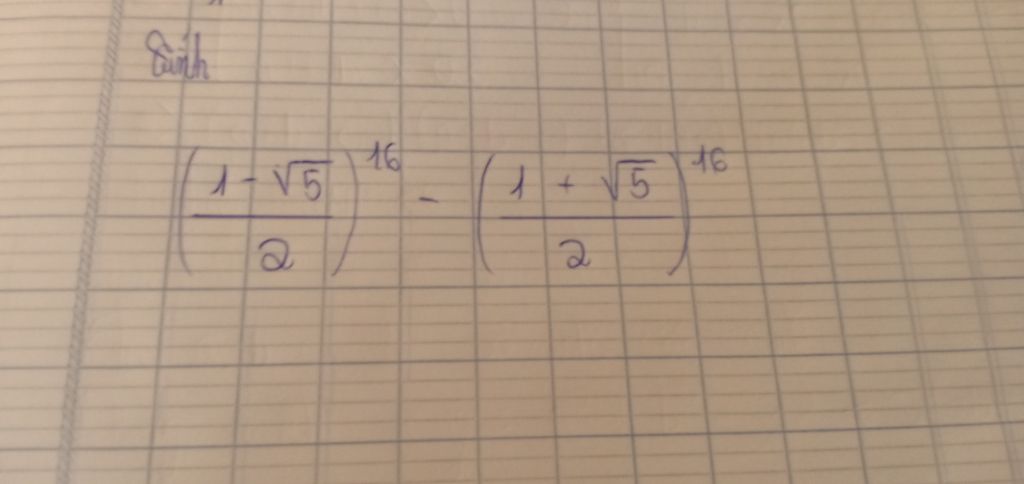 Tính
((1 - √5)/2)^16 - ((1 + √5)/2)^16